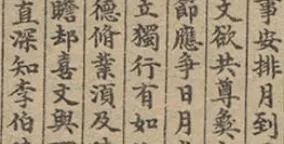 事安排月到
文欲共尊彝
節應爭日月
立獨行有如
德脩業須及
瞻却喜文與
直深知李伯